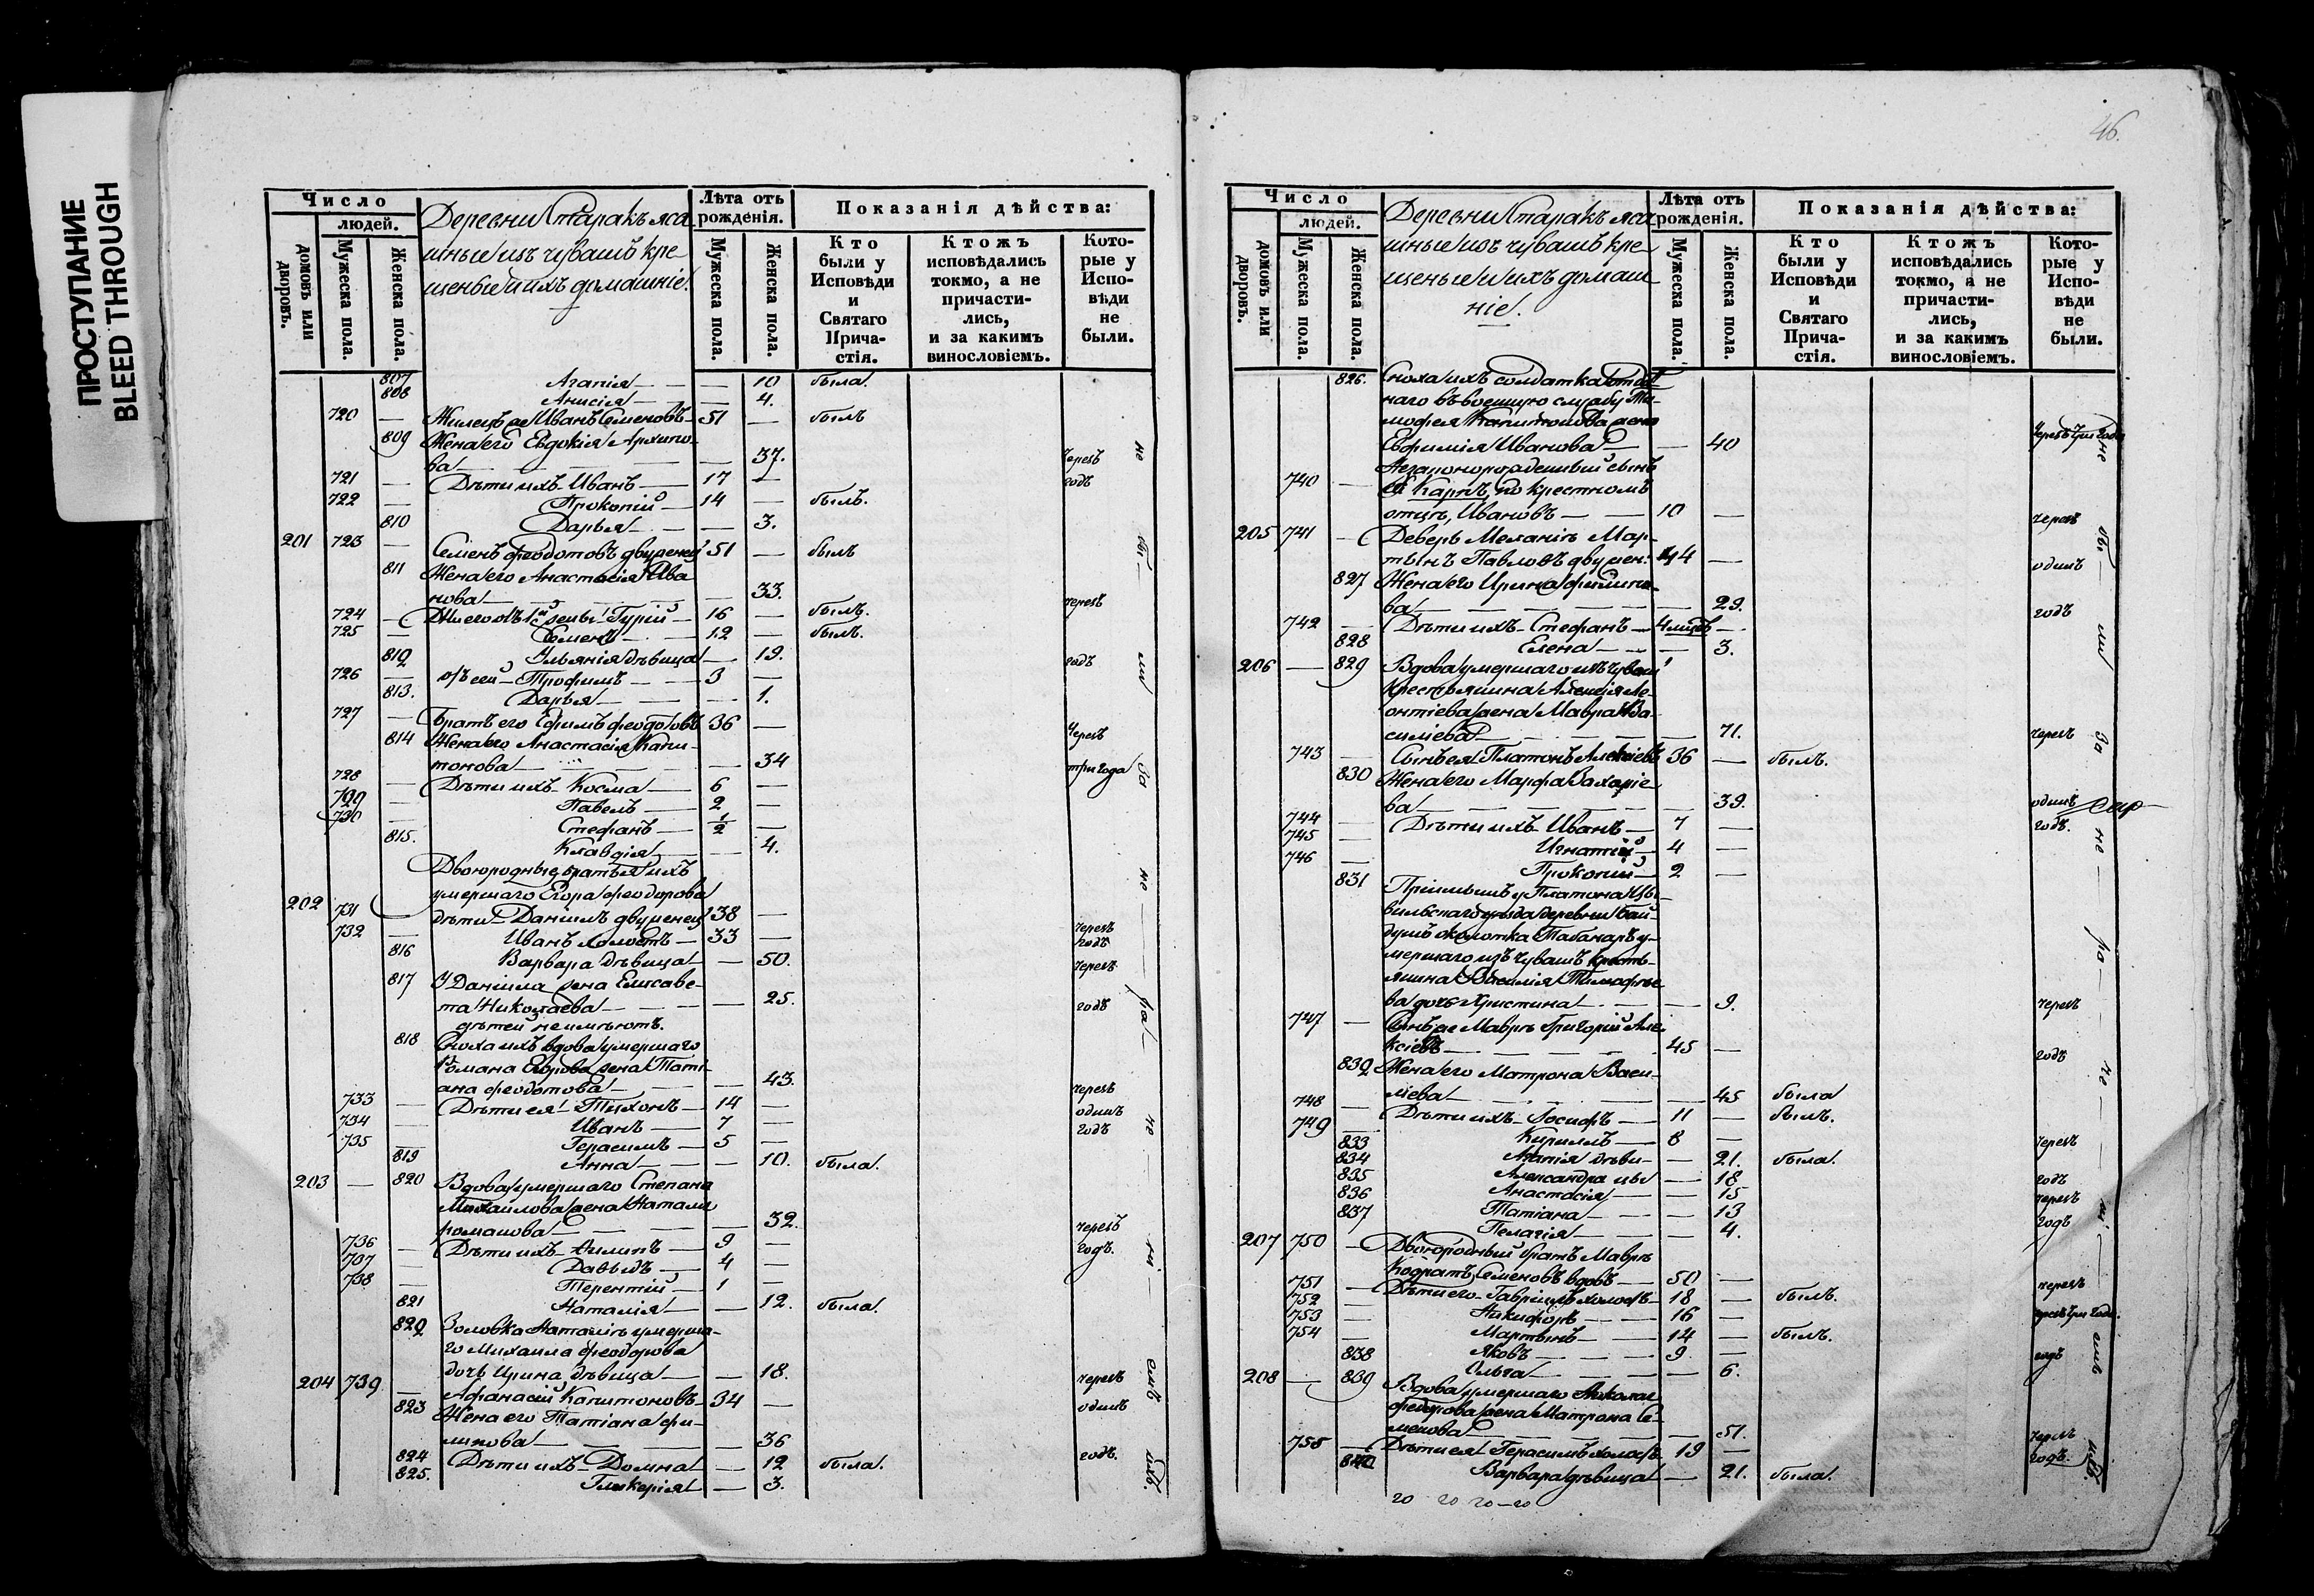 ПРОСТУПАНИЕ
BLEED THROUGH
46.
Число
людей.
домовъ или дворовъ.
Мужеска пола.
Женска пола.
Деревни Старакъ яса
шные изъ чувашъ кре
щеные и ихъ домашніе.
Лѣта отъ рожденія.
Мужеска пола.
Женска пола.
Показанія дѣйства:
Кто были у Исповѣди и Святаго Прича-стія.
Ктожъ исповѣдались токмо, а не причасти-лись, и за какимъ винословіемъ.
Кото-рые у Испо-вѣди не были.
807 Агапія — — 10 была.
808 Анисія — — 4.
720 — Жилецъ ея Иванъ Семеновъ — 51 — былъ
809 Жена его Евдокія Архипо-
ва — — 37. чрезъ
721 — Дѣти ихъ Иванъ — 17 — годъ
722 — Прокопій — 14 — былъ.
810 Дарья — — 3.
201 723 — Семенъ Феодотовъ двуженец 51 — былъ
811 Жена его Анастасія Ива
нова — — 33. чрезъ
724 — Дѣти его отъ 1й жены Гурій — 16 — былъ.
725 — Семенъ — 12 — былъ.
812 Ульянія дѣвица — 19. годъ
726 — отъ сей — Трофимъ — 3 —
813. Дарья — — 1.
727 — Братъ его Ефимъ Феодотовъ 36 — чрезъ
814 Жена его Анастасія Капи-
тонова — — 34 три года
728 — Дѣти ихъ Косма — 6 —
729 — Павелъ — 2 —
730 — Стефанъ — 1/2 —
815. Клавдія — — 4.
Двоюродные братья ихъ
умершаго Егора Феодорова
202 731 — дѣти — Даніилъ двуженец 38 — чрезъ
732 — Иванъ холостъ — 33 — годъ
816 Варвара дѣвица — 50. чрезъ
817 У Даніила жена Елисаве-
та Николаева — — 25. годъ
дѣтей не имѣютъ.
818 Сноха ихъ вдова умершаго
Романа Егорова жена Тати-
ана Феодотова — — 43. чрезъ
733 — Дѣти ея — Тихонъ — 14 — одинъ
734 — Иванъ — 7 — годъ
735 — Герасимъ — 5 —
819 Анна — — 10. была.
203 — 820 Вдова умершаго Степана
Михаилова жена Наталія
Романова — — 32. чрезъ
736 — Дѣти ихъ — Филипъ — 9 — годъ.
737 — Давыдъ — 4 —
738 — Терентій — 1 —
821 Наталія — — 12. была.
822 Золовка Наталіи умерша-
го Михаила Феодорова
дочь Ирина дѣвица — — 18. чрезъ
204 739 — Афанасій Капитоновъ — 34 — одинъ
823 Жена его Татіана Фи-
липова — — 36 годъ.
824 Дѣти ихъ — Домна — 12 была.
825. Гликерія — — 3.
не бытіемъ за не ра
Число
людей.
домовъ или дворовъ.
Мужеска пола.
Женска пола.
Деревни Старакъ яса
шные изъ чувашъ кре
щеные и ихъ домаш
ніе.
Лѣта отъ рожденія.
Мужеска пола.
Женска пола.
Показанія дѣйства:
Кто были у Исповѣди и Святаго Прича-стія.
Ктожъ исповѣдались токмо, а не причасти-лись, и за какимъ винословіемъ.
Кото-рые у Испо-вѣди не были.
826. Сноха ихъ солдатка отдан
наго въ военную службу Ти-
мофея Капитонова жена
Евфимія Иванова — — 40 чрезъ три года
Незаконорожденный сынъ
740 — ея Карпъ, по крестномъ
отцѣ, Ивановъ — 10 — чрезъ
205 741 — Деверь Меланіи Мар-
тынъ Павловъ двужен. 44 — одинъ
827 Жена его Ирина Филипо-
ва — — 29. годъ
742 — Дѣти ихъ — Стефанъ — 4 мцсъ —
828 Елена — — 3.
206 — 829 Вдова умершаго изъ чуваш
крестьянина Алексія Ле-
онтіева жена Мавра Ва-
силіева — — 71. чрезъ
743 — Сынъ ея Платонъ Алексіевъ 36 — былъ.
830 Жена его Марфа Захаріе
ва — — 39. одинъ
744 — Дѣти ихъ — Иванъ — 7 — годъ.
745 — Игнатій — 4 —
746 — Прокопій — 2 —
831 Пріемышъ у Платона Ци-
вильскаго уѣзда деревни Бай-
душъ околотка Табанаръ у-
мершаго изъ чувашъ кресть-
янина Василія Тимофѣе
ва дочь Христина — — 9. чрезъ
747 — Сынъ ея Мавры Григорій Але-
ксіевъ — 45 — годъ
832 Жена его Матрона Васи-
ліева — — 45 была
748 — Дѣти ихъ — Іосифъ — 11 — былъ.
749 — Кириллъ — 8 — чрезъ
833 Агапія дѣви- — 21. была.
834 Александра цы — 18 годъ
835 Анастасія — — 15 чрезъ
836 Татіана — — 13 годъ
837 Пелагія — — 4.
207 750 — Двоюродный братъ Мавры
Кодратъ Семеновъ вдовъ — 50 — чрезъ
751 — Дѣти его — Гавріилъ холостъ — 18 — былъ.
752 — Никифоръ — 16 — чрезъ три года.
753 — Мартынъ — 14 — былъ.
754 — Яковъ — 9 — годъ
838 Ольга — — 6.
208 — 839 Вдова умершаго Николая
Федорова жена Матрона Се-
менова — — 51. чрезъ
755 — Дѣти ея Герасимъ холостъ 19 — годъ.
840 Варвара дѣвица — 21. была.